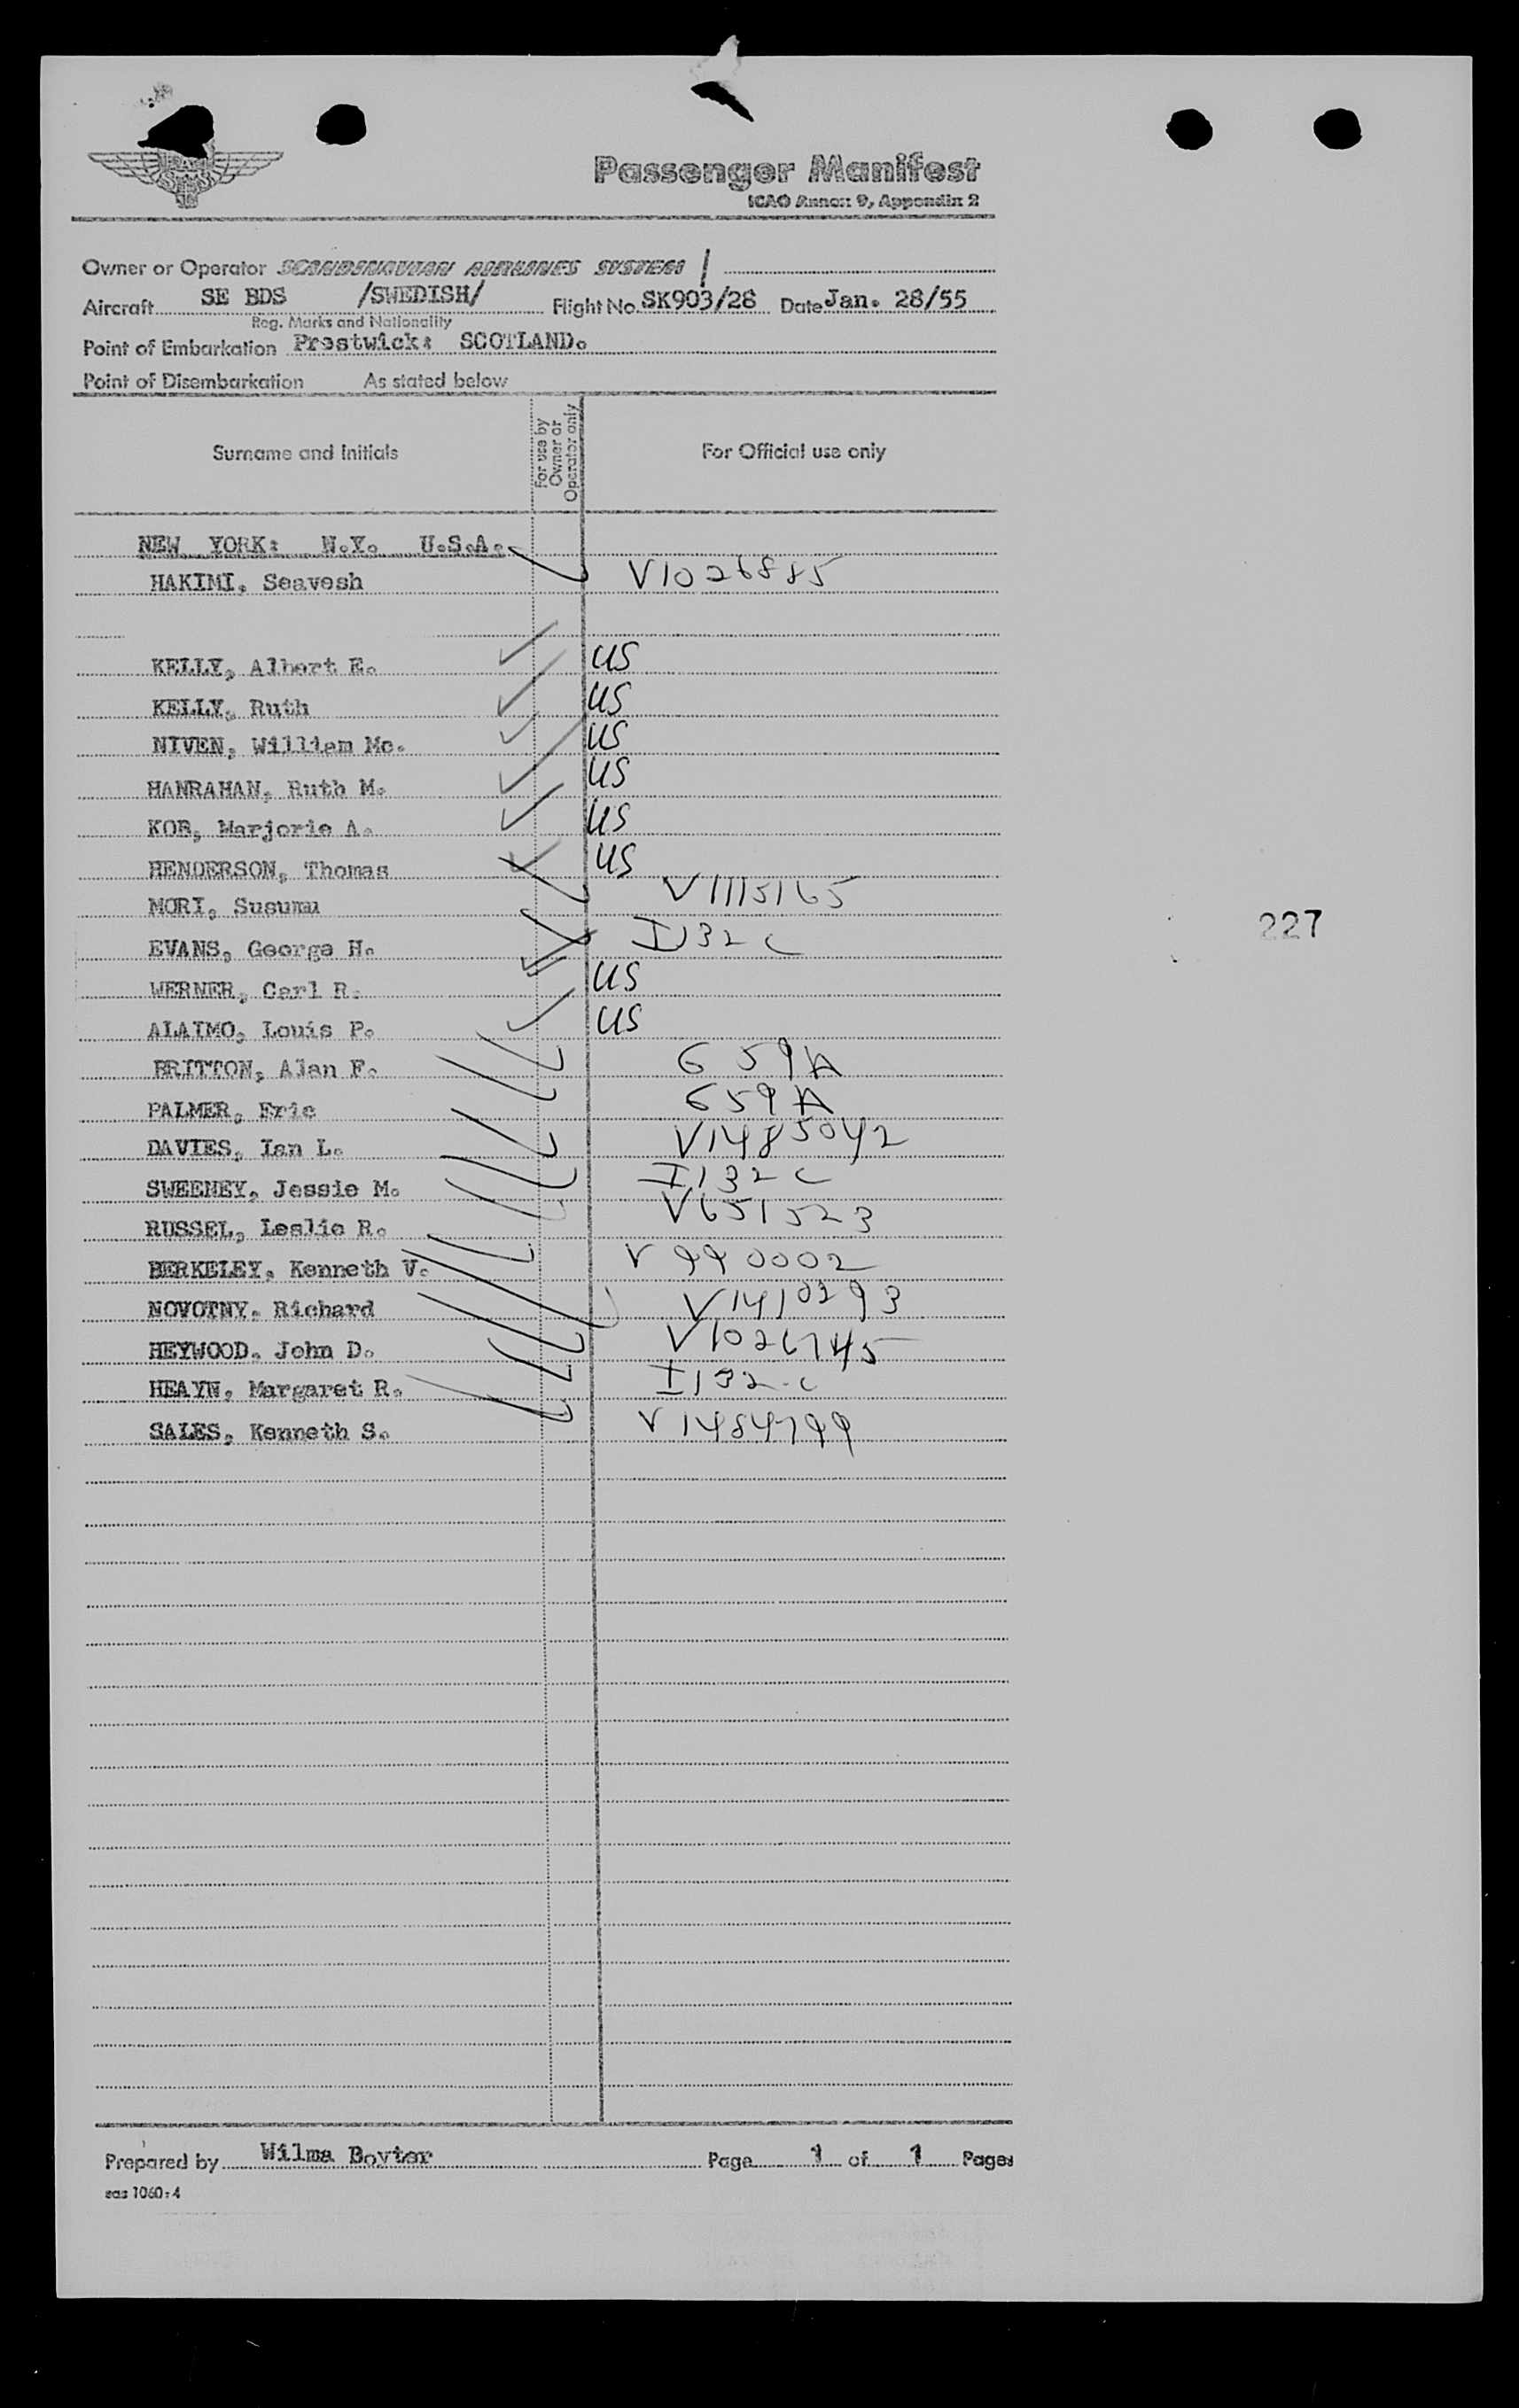 Passenger Manifest
ICAO Annex 9, Appendix 2
Owner or Operator SCANDINAVIAN AIRLINES SYSTEM
Aircraft SE BDS /SWEDISH/ Flight No. SK903/28 Date Jan. 28/55
Reg. Marks and Nationality
Point of Embarkation Prestwick: SCOTLAND.
Point of Disembarkation As stated below
Surname and Initials For use by Owner or Operator only For Official use only
NEW YORK: N.Y. U.S.A.
HAKIMI, Seavesh V1026885
KELLY, Albert E. US
KELLY, Ruth US
NIVEN, William Mc. US
HANRAHAN, Ruth M. US
KOB, Marjorie A. US
HENDERSON, Thomas US
MORI, Susumu V1115165
EVANS, George H. I132 C
WERNER, Carl R. US
ALAIMO, Louis P. US
BRITTON, Alan F. G 59A
PALMER, Eric G59A
DAVIES, Ian L. V1485042
SWEENEY, Jessie M. I132 C
RUSSEL, Leslie R. V651523
BERKELEY, Kenneth V. V990002
NOVOTNY, Richard V1410293
HEYWOOD, John D. V1026745
HEAYN, Margaret R. I132-C
SALES, Kenneth S. V1484799
227
Prepared by Wilma Boyter Page 1 of 1 Pages
sas 1060:4